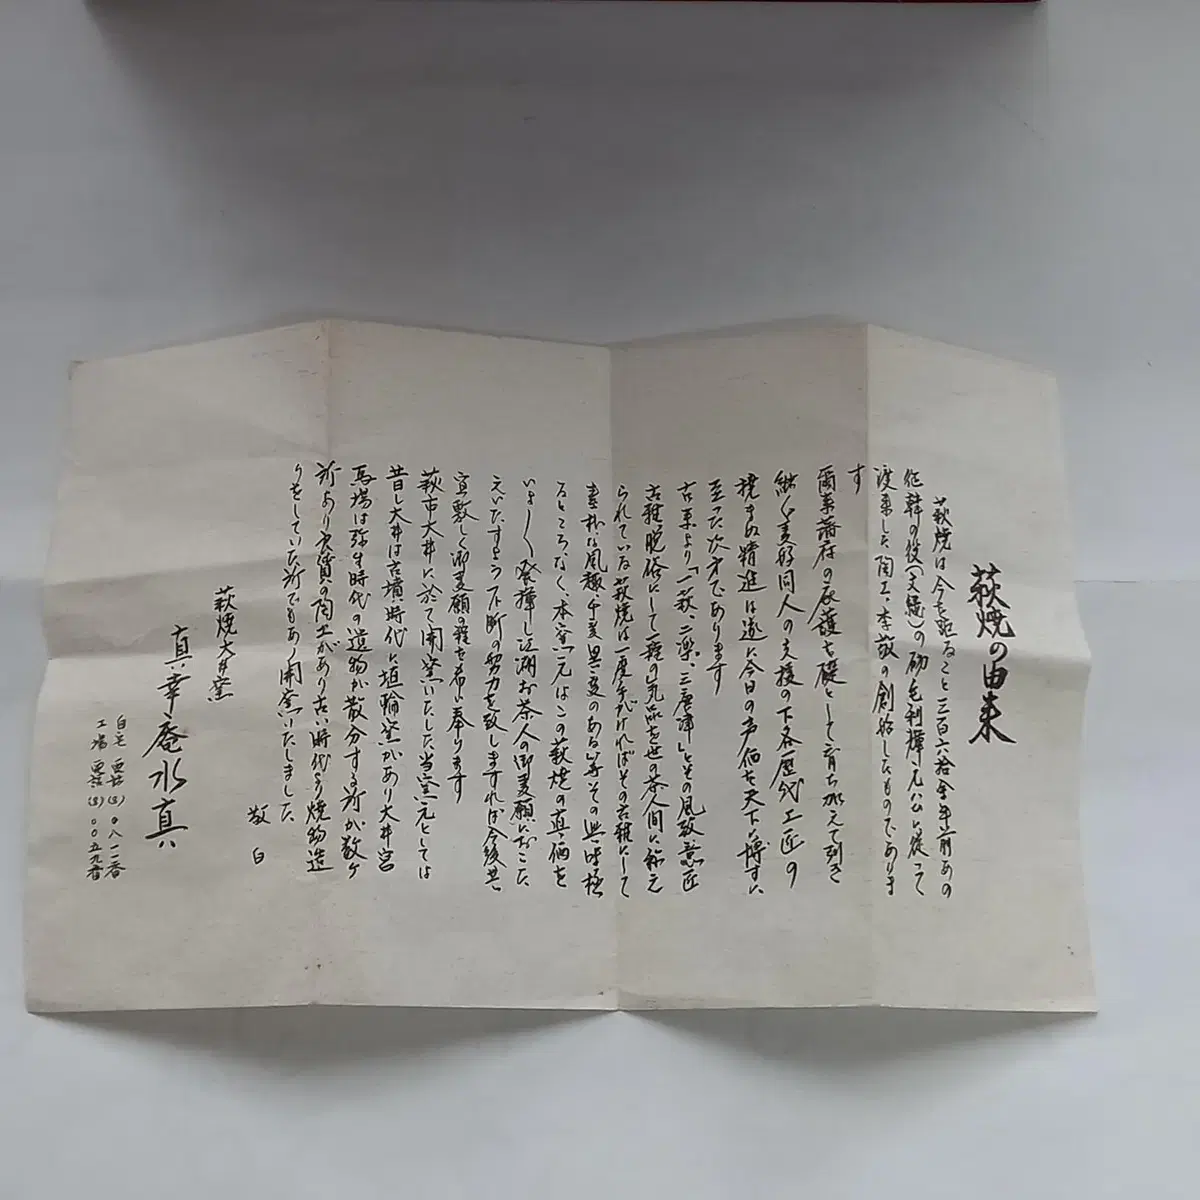 萩焼の由来
萩焼は今を距ること三百六拾余年前あの
征韓の役(文禄)の砌毛利輝元公に従って
渡来した陶工・李敬の創始したものでありま
す
爾来藩府の庇護を礎として育ち加えて引き
継ぐ愛好同人の支援の下各歴代工匠の
撓まぬ精進は遂に今日の声価を天下に博すに
至った次第であります
古来より「一萩、二楽、三唐津」とその風致意匠
古雅脱俗にして一種の気品を世の茶人間に称え
られている萩焼は一度手がければその古雅にして
素朴な風趣千変異変のある等その興味極
るところなく、本窯元はこの萩焼の真価を
いよ〱発揮し江湖お茶人の御愛顧におこた
えいたすよう不断の努力を致しますれば今後共
宜敷く御愛顧の程を希い奉ります
萩市大井に於て開窯いたした当窯元としては
昔し大井は古墳時代に埴輪窯があり大井宮
馬場は弥生時代の遺物が散分する所が数ヶ
所あり良質の陶土があり古い時代より焼物造
りをしていた所でもあり開窯いたしました
敬白
萩焼大井窯
真幸庵水真
自宅 電話(8)〇八一二番
工場 電話(8)〇〇五九番